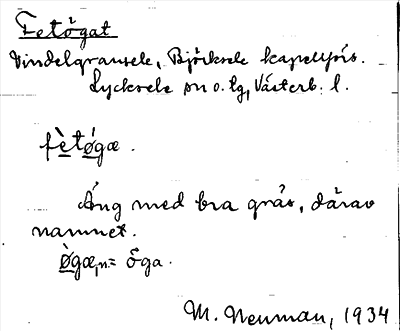 Fetögat
Vindelgransele, Björksele kapellförs.
Lycksele sn o. tg, Västerb. l.
fètǿgæ.
Äng med bra gräs, därav
namnet.
ø̀gæ, n = öga.
M. Neuman, 1934